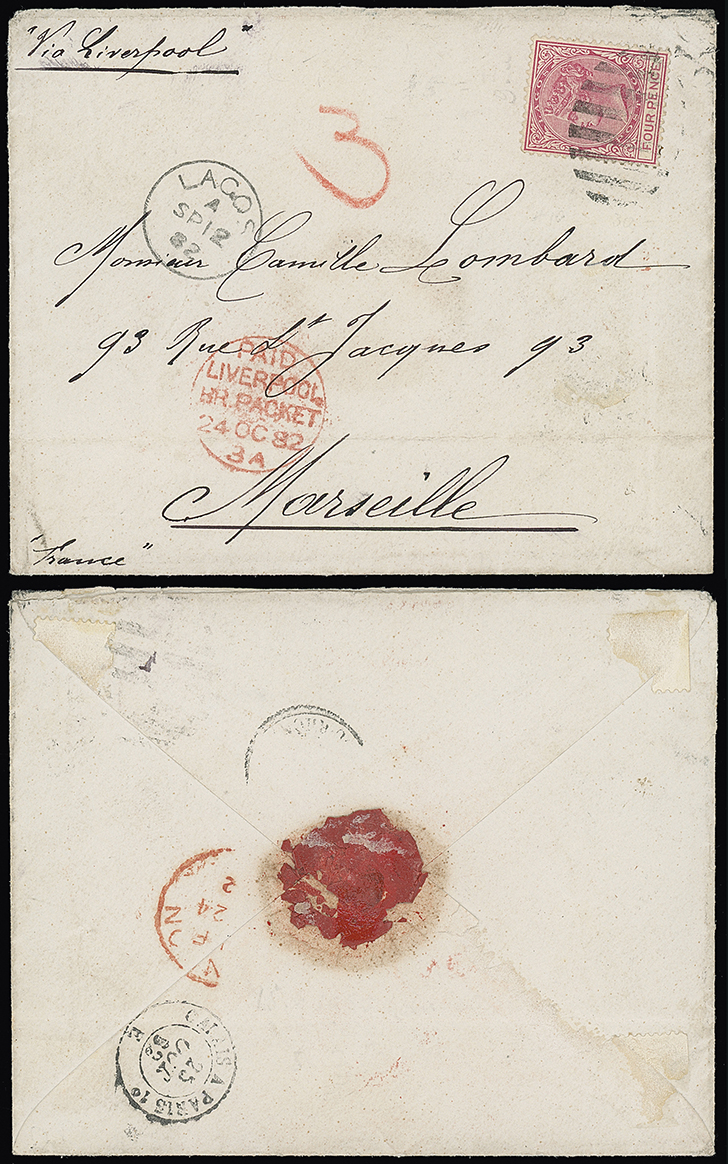 "Via Liverpool"
LAGOS
FOUR PENCE
3
LAGOS
A
SP 12
82
Monsieur Camille Lombard
93 Rue St Jacques 93
PAID
LIVERPOOL
BR. PACKET
24 OC 82
3A
Marseille
"France"
24
CALAIS A PARIS 1º
25
82
E